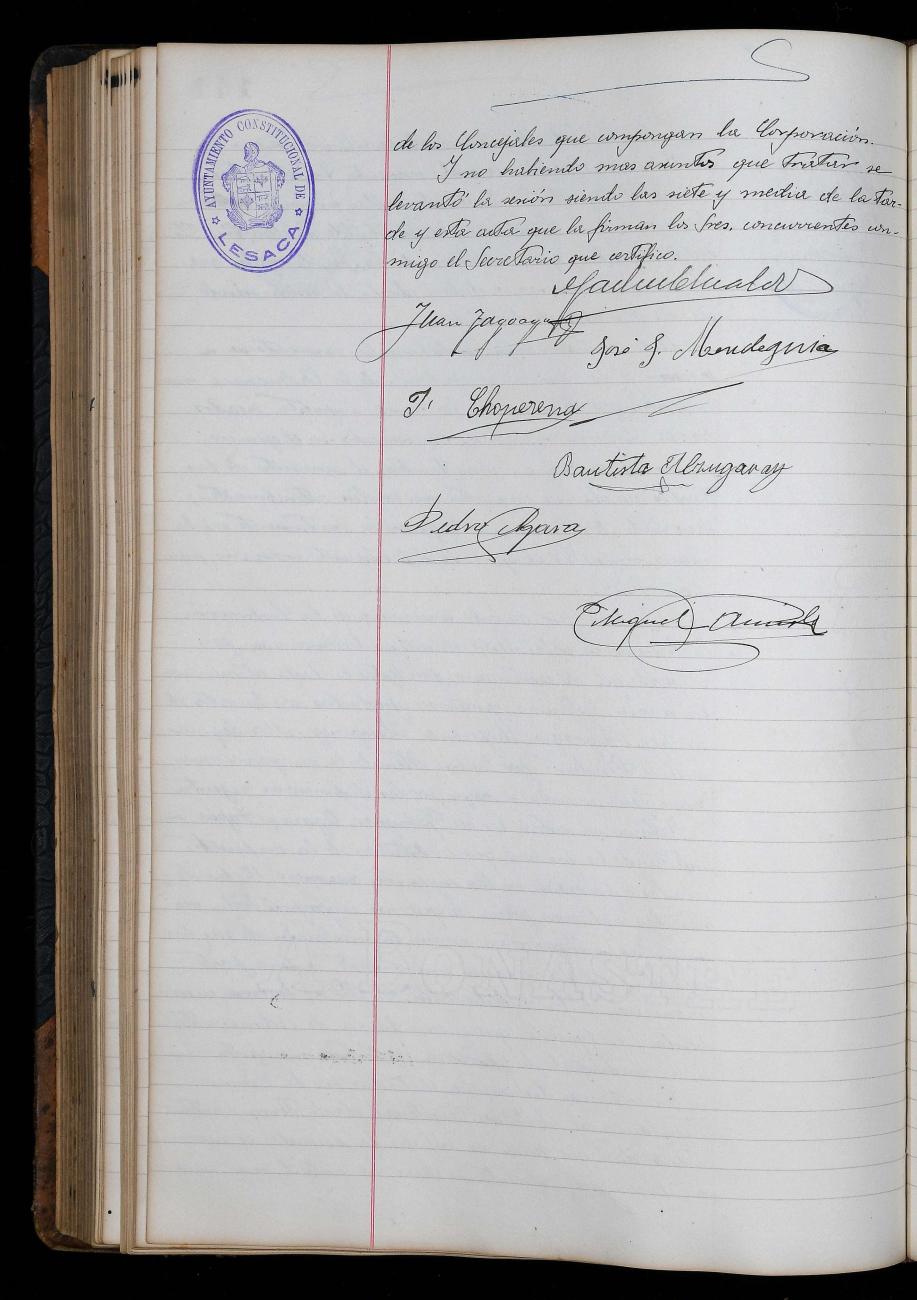 AYUNTAMIENTO CONSTITUCIONAL DE
LESACA
de los Concejales que compongan la Corporación.
Y no habiendo mas asuntos que tratar se
levantó la sesión siendo las siete y media de la tar-
de y esta acta que la firman los Sres. concurrentes con-
migo el Secretario que certifico.
Juan
José J. Mendeguia
T. Choperena
Bautista
Pedro
Miguel